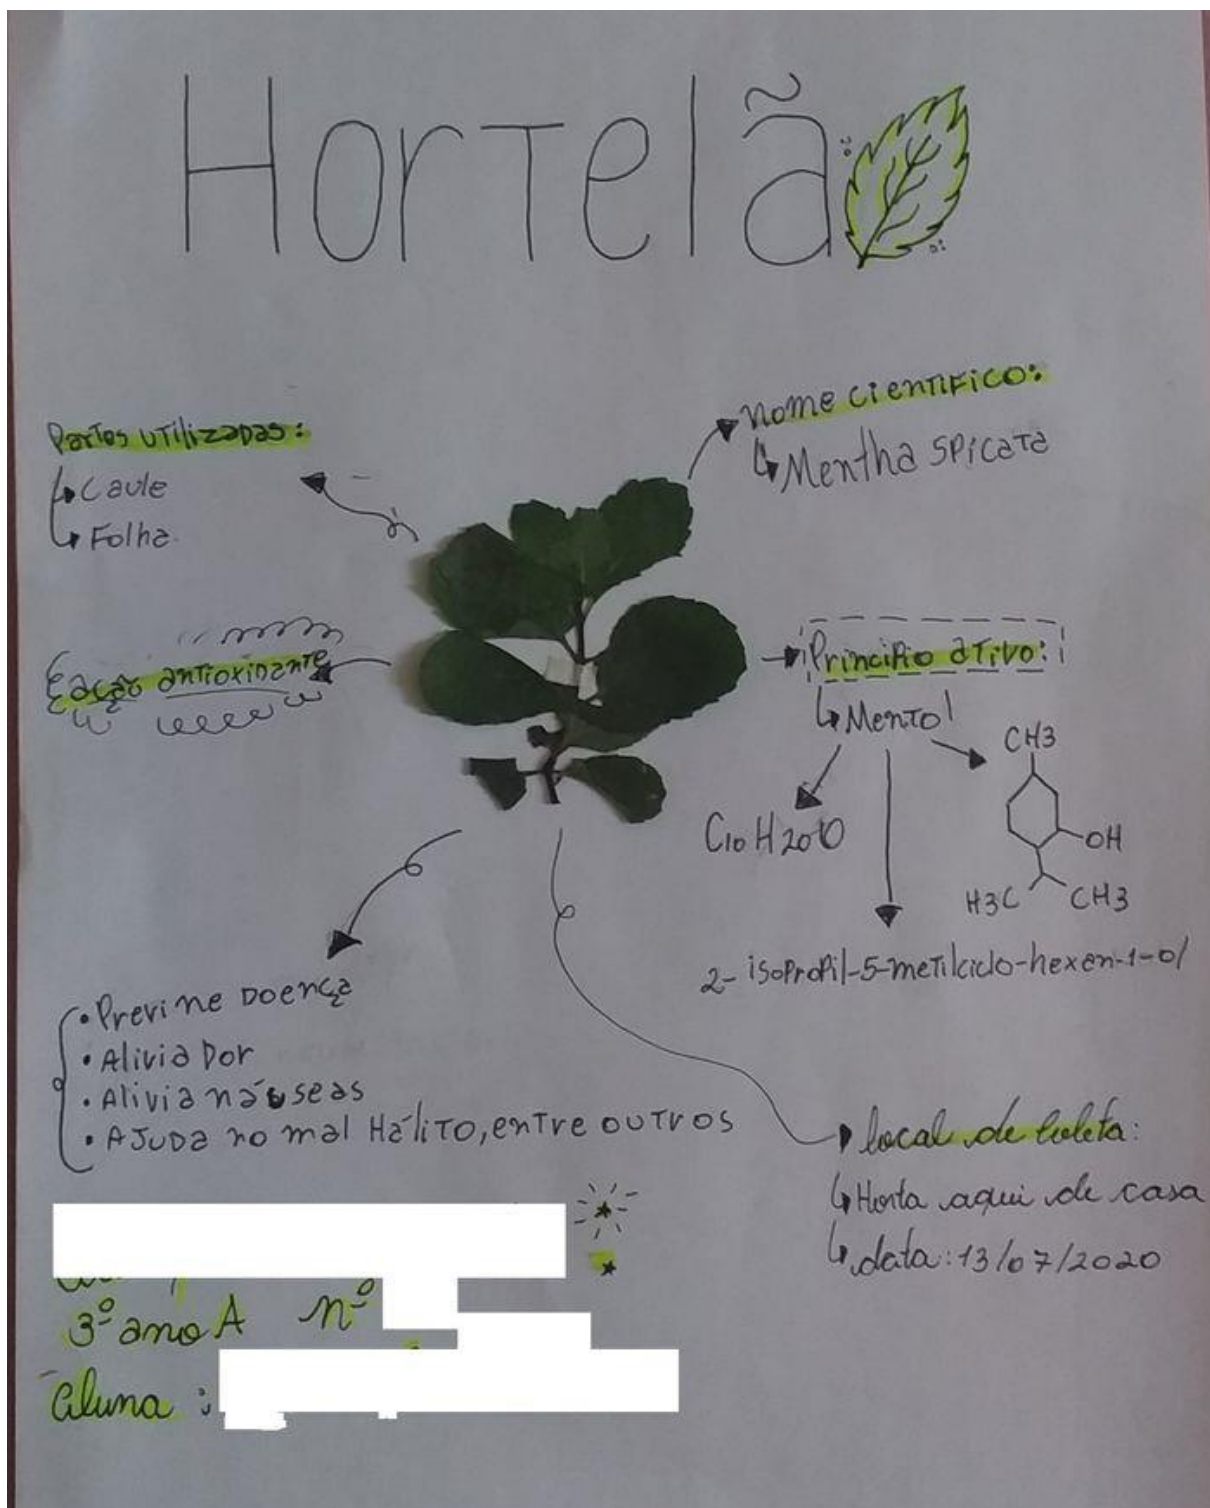 Hortelã
Partes utilizadas:
Caule
Folha
ação antioxidante
nome cientifico:
Mentha spicata
Principio ativo:
Mentol
C10H20O
CH3
OH
H3C
CH3
2-isopropil-5-metilciclo-hexan-1-ol
• Previne Doença
• Alivia Dor
• Alivia náuseas
• Ajuda no mal Hálito, entre outros
local de coleta:
Horta aqui de casa
data: 13/07/2020
3º ano A nº
aluna: